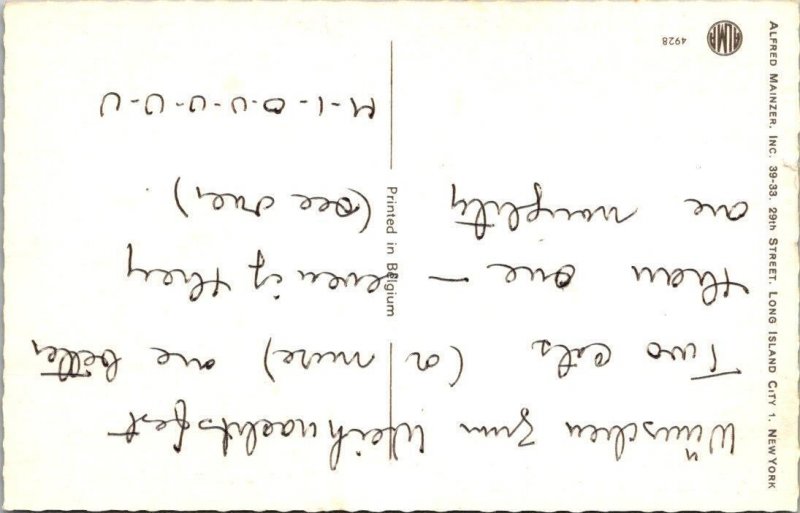 Wünschen zum Weihnachtsfest
Two Cats (or more) are better
than one — even if they
are naughty (see over)
M-I-O-U-U-U-U
Printed in Belgium
ALFRED MAINZER, INC. 39-33, 29th STREET, LONG ISLAND CITY 1, NEW YORK
ALMA
4928